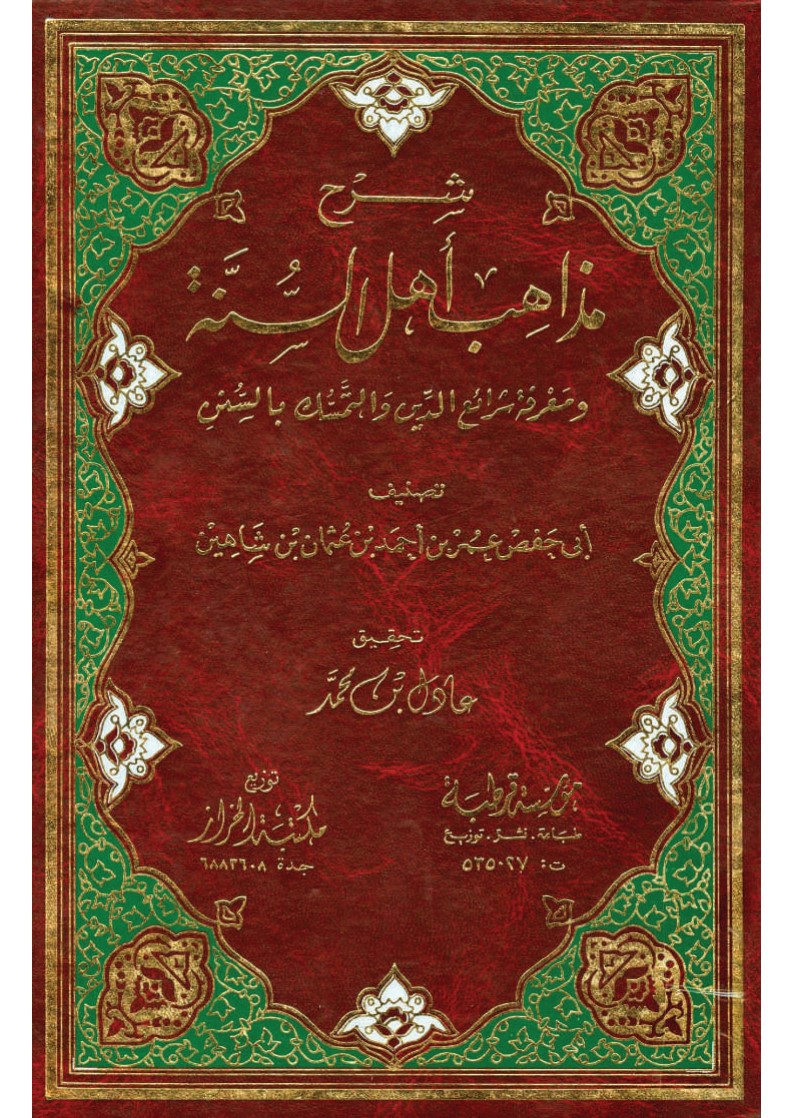 شرح
مذاهب أهل السُّنَّة
ومَعْرفة شرائع الدِّين والتَّمسُّك بالسُّنن
تصنيف
أبي حَفص عُمر بن أحمَد بن عُثمان بن شَاهِين
تحقيق
عادل بن محمَّد
مؤسسة قرطبة
طباعة . نشر . توزيع
ت : ٥٣٥٠٢٧
توزيع
مكتبة الخراز
جدة ٦٨٨٣٦٠٨